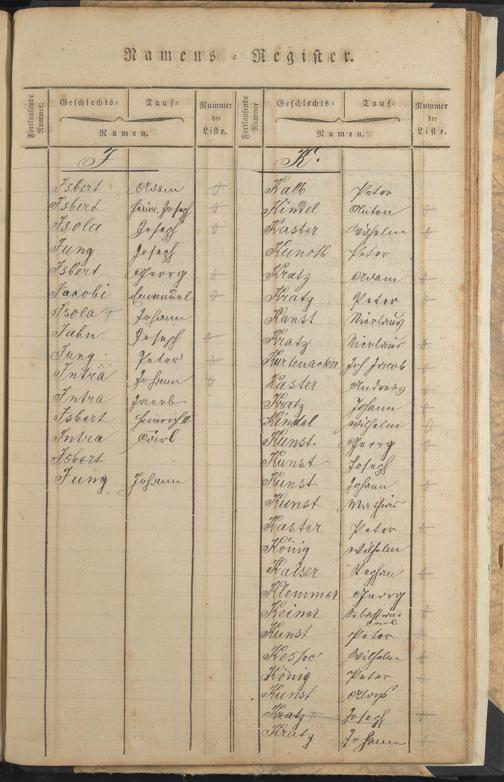 Namens-Register.
Fortlaufende Nummer.
Geschlechts- Tauf-
Namen.
Nummer der Liste.
Fortlaufende Nummer.
Geschlechts- Tauf-
Namen.
Nummer der Liste.
J
Isbert Adam
Isbert Heinr. Joseph
Isola Joseph
Jung Joseph
Isbert Georg
Jacobi Emanuel
Isola Johann
Jahn Joseph
Jung Peter
Inträ Johann
Intra Jacob
Isbert Heinrich
Intra Carl
Isbert
Jung Johann
K.
Kalb Peter
Kindel Anton
Kaster Wilhelm
Kunoth Peter
Kratz Adam
Kratz Peter
Kunst Nicolaus
Kratz Nicolaus
Kartenacker Joh Jacob
Kaster Andreas
Kratz Johann
Kindel Wilhelm
Kunst Georg
Kunst Joseph
Kunst Johann
Kunst Mathias
Kaster Peter
König Wilhelm
Kaiser Stephan
Klemmer Georg
Keiner Sebastian Carl
Kunst Peter
Wilhelm
König Peter
Kunst Aloys
Kratz Joseph
Kratz Johann